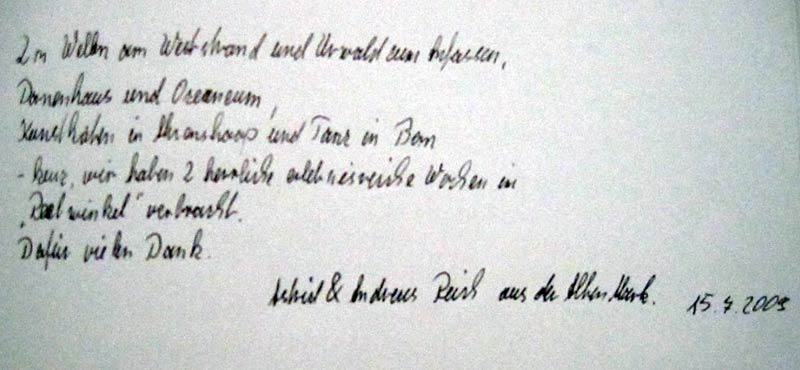 2m Wellen am Weststrand und Urwald zum Anfassen,
Darßenhaus und Ozeaneum,
Kunstkaten in Ahrenshoop und Tanz in Born
- kurz, wir haben 2 herrliche erlebnisreiche Wochen in
„ winkel" verbracht.
Dafür vielen Dank.
Astrid & Andreas Reich aus der Alten Mark. 15.7.2009